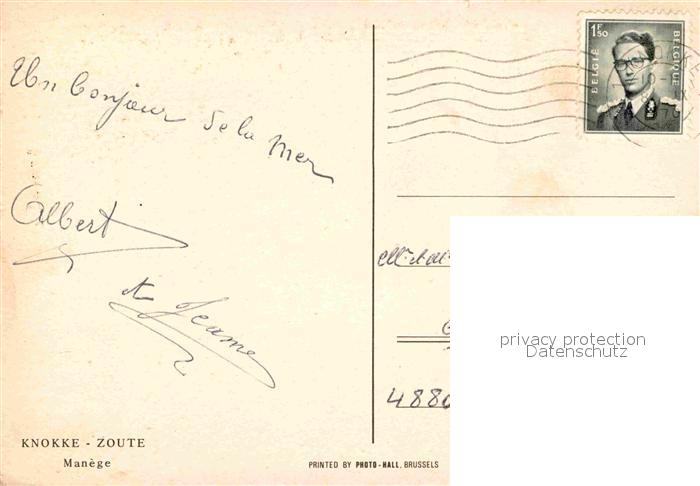 Un bonjour de la mer
Albert
et Jeanne
KNOKKE - ZOUTE
Manège
PRINTED BY PHOTO-HALL, BRUSSELS
1F50
BELGIË
BELGIQUE
Mr et M
4880
privacy protection
Datenschutz